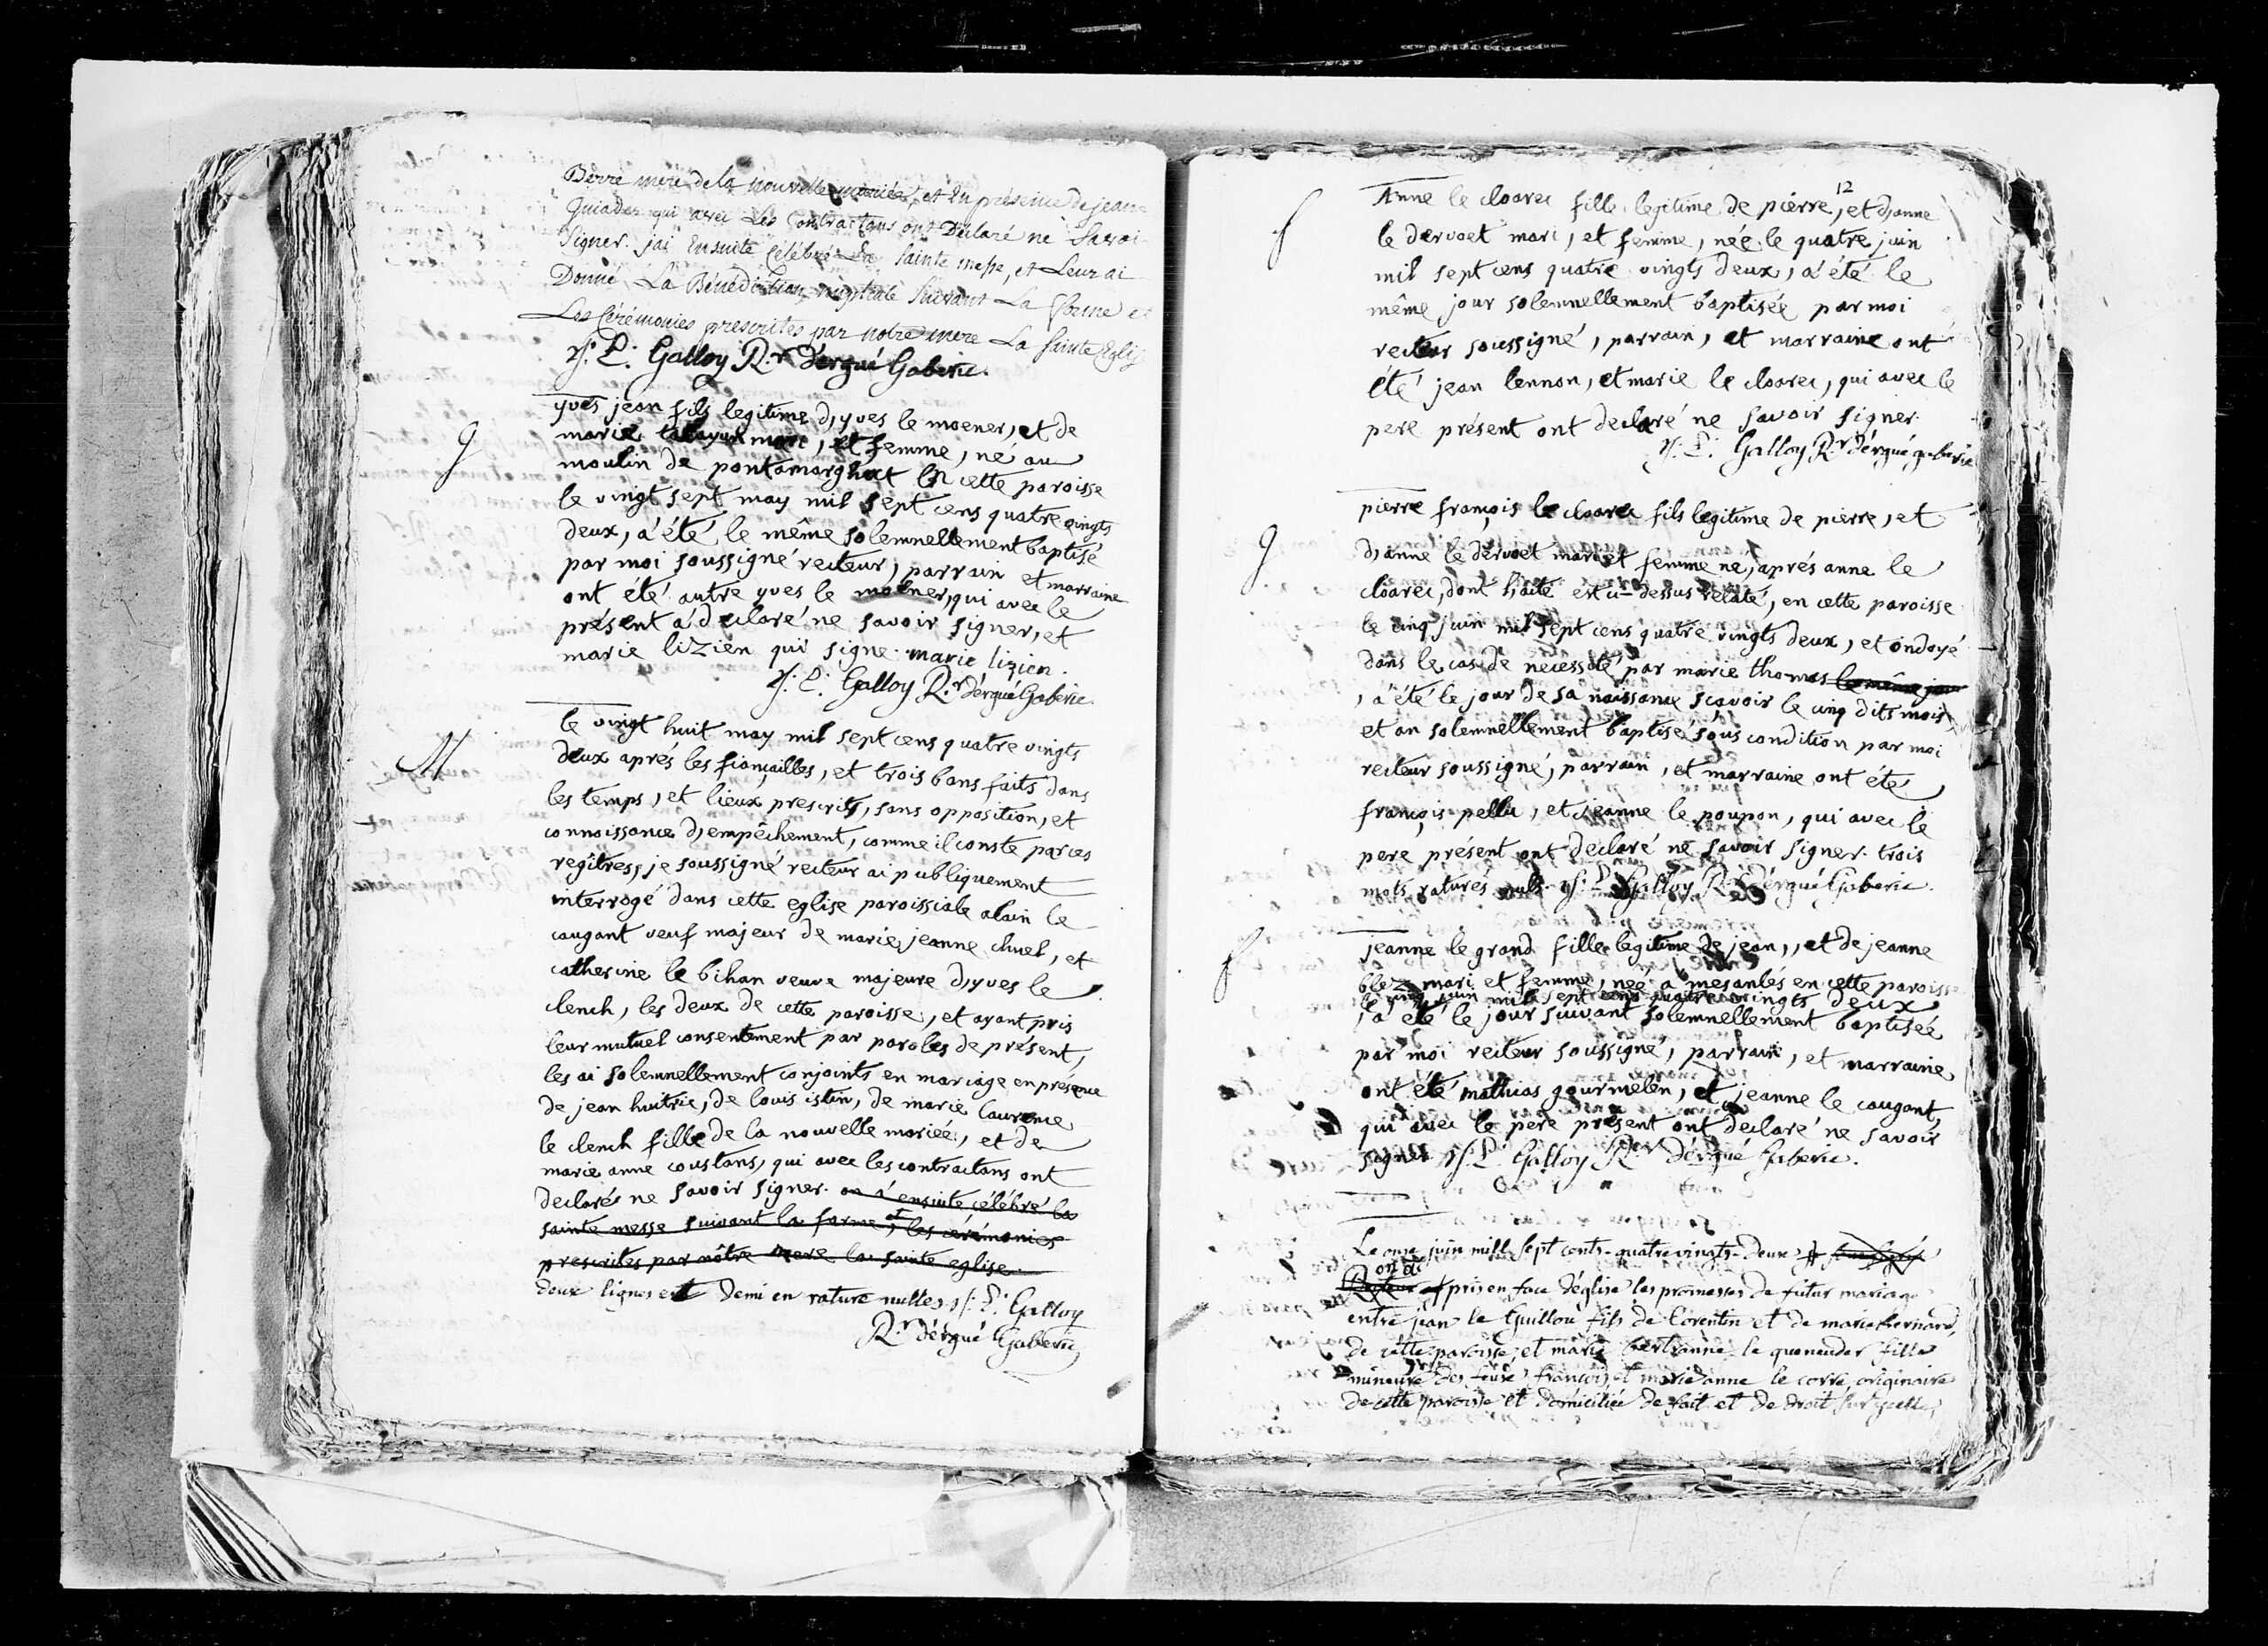 Berre mere de la nouvelle mariée, et En présence de jean
Guiader qui avec Les Contractans ont Déclaré ne Savoi
Signer. jai Ensuite Célébré La Sainte messe, et Leur ai
Donné La Bénédiction nuptiale Suivant La forme et
Les Cérémonies prescrites par notre mere La Sainte Eglis
Galloy R.r d'ergué Gaberic.
yves jean fils legitime d'yves le moener, et de
marie mari, et femme, né au
moulin de pontamarghat En cette paroisse
le vingt sept may mil sept cens quatre vingts
deux, a été le même solemnellement baptisé
par moi soussigné recteur, parrain et marraine
ont été autre yves le moener, qui avec le
présent a declaré ne savoir signer, et
marie lizien qui signe. marie lizien.
Galloy R.r d'ergué Gaberic.
M
le vingt huit may mil sept cens quatre vingts
deux aprés les fiançailles, et trois bans faits dans
les temps, et lieux prescrits, sans opposition, et
connoissance d'empêchement, comme il conste par ces
regîtres, je soussigné recteur ai publiquement
interrogé dans cette eglise paroissiale alain le
caugant veuf majeur de marie jeanne chuel, et
catherine le bihan veuve majeure d'yves le
clench, les deux de cette paroisse, et ayant pris
leur mutuel consentement par paroles de présent,
les ai solemnellement conjoints en mariage en présence
de jean huitric, de louis istin, de marie laurence
le clench fille de la nouvelle mariée, et de
marie anne coustans, qui avec les contractans ont
declarés ne savoir signer. on a ensuite célébré la
sainte messe suivant la forme et les cérémonies
prescrites par nôtre mere la sainte eglise.
deux lignes et demi en rature nulles Galloy
R.r d'érgué Gaberic
12
Anne le cloarec fille legitime de pierre, et d'anne
le dervoet mari, et femme, née le quatre juin
mil sept cens quatre vingts deux, a été le
même jour solemnellement baptisée par moi
recteur soussigné, parrain, et marraine ont
été jean lennon, et marie le cloarec, qui avec le
pere présent ont declaré ne savoir signer.
Galloy R.r d'érgué gaberic
pierre françois le cloarec fils legitime de pierre, et
d'anne le dervoet mari et femme né, aprés anne le
cloarec, dont l'acte est ci-dessus relaté, en cette paroisse
le cinq juin mil sept cens quatre vingts deux, et ondoyé
dans le cas de necessité par marie thomas le même jour
, a été le jour de sa naissance sçavoir le cinq dits mois
et an solemnellement baptisé sous condition par moi
recteur soussigné, parrain, et marraine ont été
françois pellu, et jeanne le poupon, qui avec le
pere présent ont declaré ne savoir signer. trois
mots raturés nuls Galloy R.r d'érgué Gaberic.
jeanne le grand fille legitime de jean, et de jeanne
blez mari et femme, née a mesanlés en cette paroisse
le cinq juin mil sept cens quatre vingts deux
, a été le jour suivant solemnellement baptisée
par moi recteur soussigné, parrain, et marraine
ont été mathias gourmelen, et jeanne le caugant,
qui avec le pere présent ont declaré ne savoir
signer Galloy R.r d'érgué Gaberic.
Le onze juin mill sept cents-quatre vingts-deux
on a
Recteur pris en face d'église les promesses de futur mariage
entre jean le Guillou fils de Corentin et de marie bernard,
de cette paroisse, et marie le quemender fille
mineure des feux françois et marie anne le corre originaire
de cette paroisse et domiciliée de fait et de droit sur icelle,